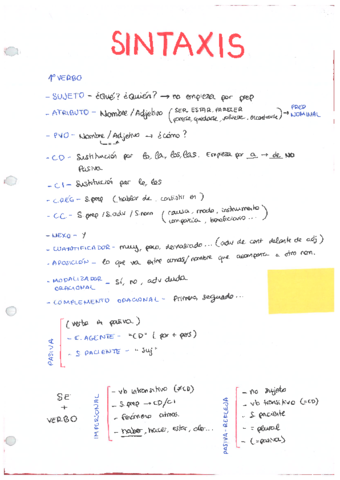 SINTAXIS
1º VERBO
- SUJETO - ¿Qué? ¿Quién? → no empieza por prep
- ATRIBUTO - Nombre / Adjetivo (SER, ESTAR, PARECER → PRED NOMINAL
ponerse, quedarse, volverse, encontrarse)
- PVO - Nombre / Adjetivo → ¿cómo?
- CD - Sustitución por lo, la, los, las. Empieza por a → de NO
Pasiva
- CI - Sustitución por le, les
- CREG - S. prep (hablar de, consistir en)
- CC - S. prep / S. adv / S. nom (causa, modo, instrumento
compañía, beneficiario ...)
- NEXO - Y
- CUANTIFICADOR - muy, poco, demasiado ... (adv de cant delante de adj)
- APOSICIÓN - lo que va entre comas / nombre que acompaña a otro nom.
- MODALIZADOR ORACIONAL - Sí, no, adv duda
- COMPLEMENTO ORACIONAL - Primero, segundo...
PASIVA
(verbo a pasiva)
- C. AGENTE - "CD" (por + pers)
- S. PACIENTE - "Suj"
SE
+
VERBO
IMPERSONAL
- vb intransitivo (≠CD)
- S. prep → CD/CI
- fenómeno atmos.
- haber, hacer, estar, ...
PASIVA-REFLEJA
- no sujeto
- vb transitivo (=CD)
- S. paciente
- = plural
- (=pasiva)